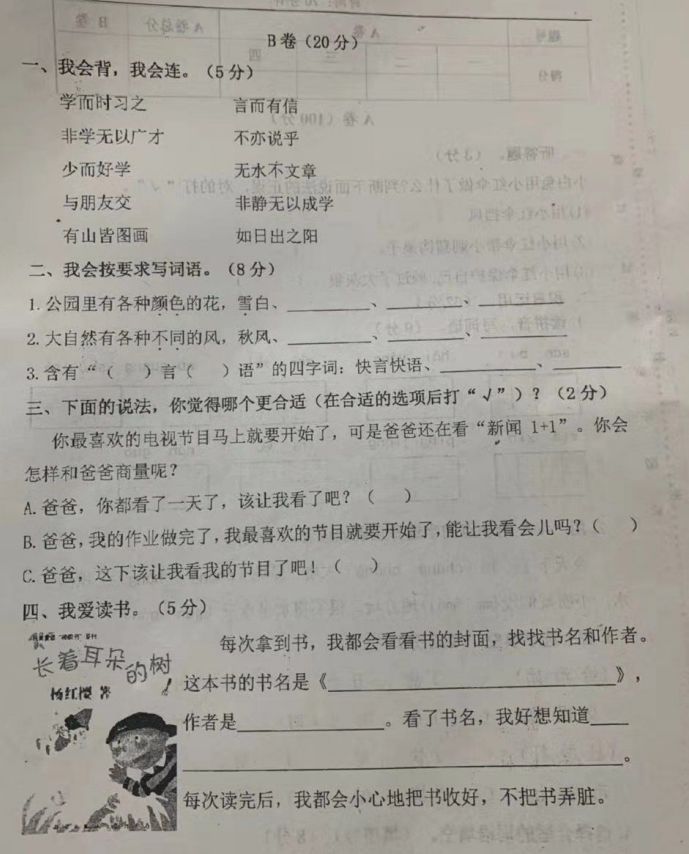 B卷（20分）
一、我会背，我会连。（5分）
学而时习之 言而有信
非学无以广才 不亦说乎
少而好学 无水不文章
与朋友交 非静无以成学
有山皆图画 如日出之阳
二、我会按要求写词语。（8分）
1.公园里有各种颜色的花，雪白、________、________、________
2.大自然有各种不同的风，秋风、________、________、________
3.含有“（ ）言（ ）语”的四字词：快言快语、________、________
三、下面的说法，你觉得哪个更合适（在合适的选项后打“√”）？（2分）
你最喜欢的电视节目马上就要开始了，可是爸爸还在看“新闻 1+1”。你会
怎样和爸爸商量呢？
A.爸爸，你都看了一天了，该让我看了吧？（ ）
B.爸爸，我的作业做完了，我最喜欢的节目就要开始了，能让我看会儿吗？（ ）
C.爸爸，这下该让我看我的节目了吧！（ ）
四、我爱读书。（5分）
长着耳朵的树
杨红樱 著
每次拿到书，我都会看看书的封面，找找书名和作者。
这本书的书名是《________________》，
作者是____________。看了书名，我好想知道____
________________________________。
每次读完后，我都会小心地把书收好，不把书弄脏。